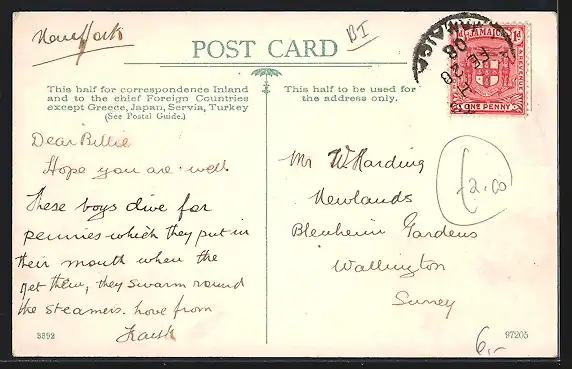 POST CARD
BI
This half for correspondence Inland
and to the chief Foreign Countries
except Greece, Japan, Servia, Turkey
(See Postal Guide.)
This half to be used for
the address only.
JAMAICA
1d
ONE PENNY
JAMAICA
FE 28
08
Dear Billie
Hope you are well.
These boys dive for
pennies which they put in
their mouth when the
get them, they swarm round
the steamers. love from
Mr W. Harding
Newlands
Blenheim Gardens
Wallington
Surrey
£2.00
3392
6,-
97205